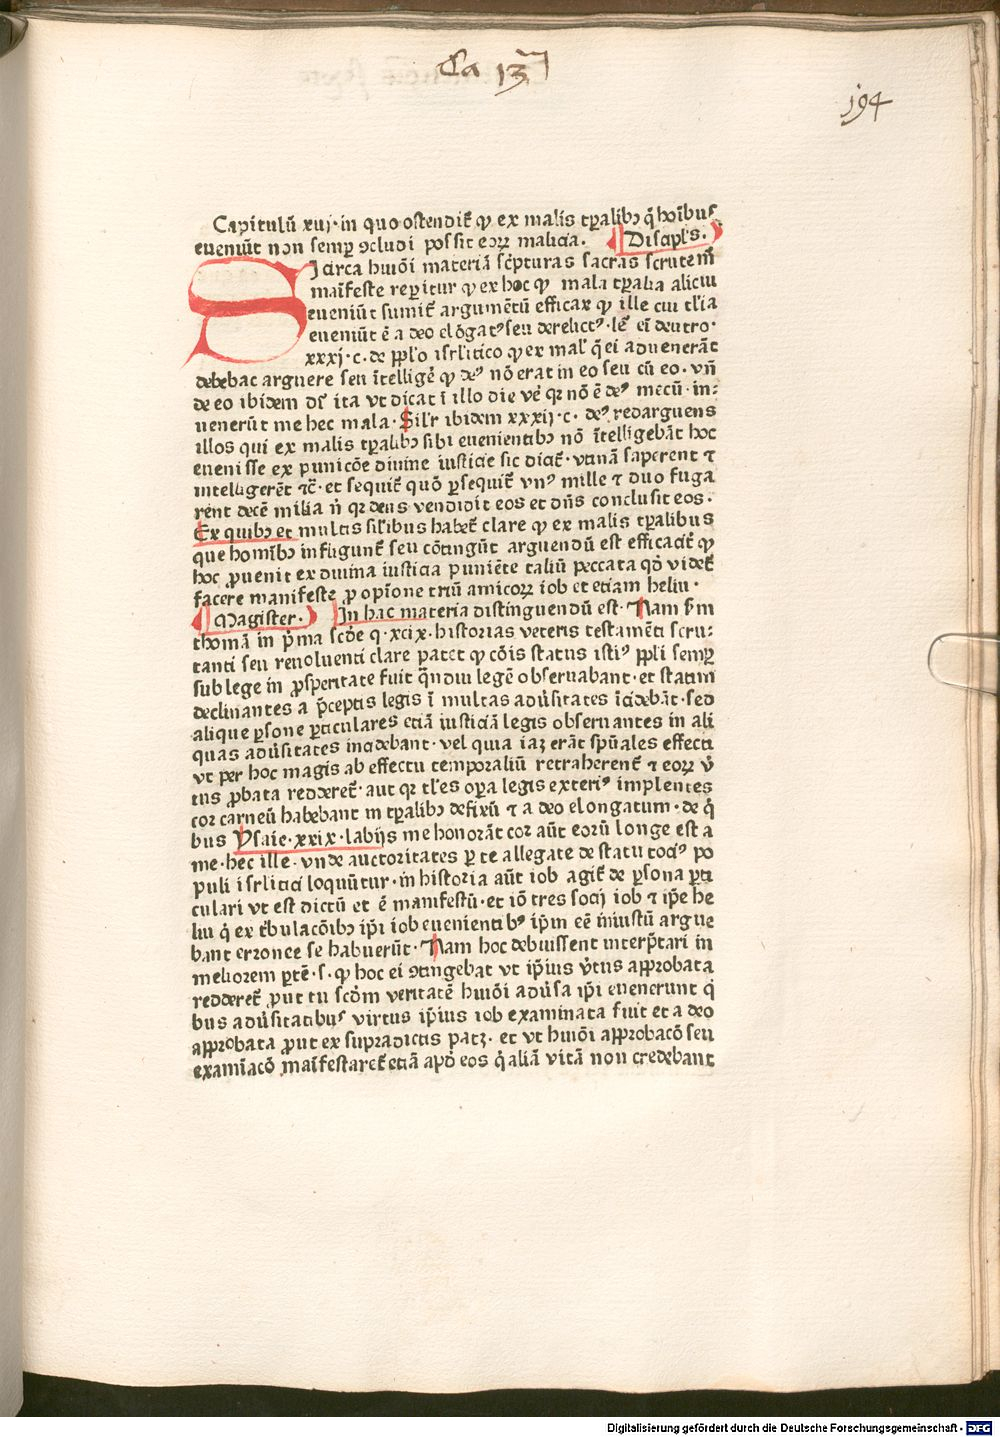 Ca 13
194
Capitulū xvij · in quo ostendit̄ ꝙ ex malis tꝑalibꝫ q̄ hoībus
eveniūt non semꝑ ꝯcludi possit eoꝝ malicia. Discipl's.
Si circa huiōi materiā sc̄pturas sacras scrutem̄
maīfeste reperitur ꝙ ex hoc ꝙ mala tꝑalia alicui
eveniūt sumit̄ argumētū efficax ꝙ ille cui tl'ia
eveniūt ē a deo elōgatꝰ seu derelictꝰ · le͛ eī deutro·
xxxj · c. de ppl'o isrl'itico ꝙ ex mal' q̄ ei advenerāt
debebat arguere seu ītellige͛ ꝙ deꝰ nō erat in eo seu cū eo · vn̄
de eo ibidem dr̄ ita vt dicat ī illo die ve͛ qꝛ nō ē deꝰ mecū · in:
venerūt me hec mala · Sil'r ibidem xxxij · c · deꝰ redarguens
illos qui ex malis tꝑalibꝫ sibi evenientibꝫ nō ītelligebāt hoc
evenisse ex punicōe divine iusticie sic dicit̄ · vtinā saperent ⁊
intelligerēt ⁊c̄ · et sequit̄ quō ꝑsequit̄ vnꝰ mille ⁊ duo fuga
rent decē milia n̄ qꝛ deus vendidit eos et dn̄s conclusit eos ·
Ex quibꝫ et multis sil'ibus habet̄ clare ꝙ ex malis tꝑalibus
que homībꝫ infligunt̄ seu cōtingūt arguendū est efficacit̄ ꝙ
hoc ꝓvenit ex divina iusticia puniēte taliū peccata qd̄ videt̄
facere manifeste ꝓ opīone triū amicoꝝ iob et etiam heliu ·
Magister. In hac materia distinguendū est · Nam sm̄
thomā in pͥma scd̄e q · xcix · historias veteris testamēti scru:
tanti seu revolventi clare patet ꝙ cōis status istiꝰ ppl'i semꝑ
sub lege in ꝓsperitate fuit qͣndiu legē observabant · et statim
declinantes a p̄ceptis legis ī multas adv͛sitates īcidebāt · sed
alique ꝑsone ꝑticulares etiā iusticiā legis observantes in ali
quas adv͛sitates incidebant · vel quia iaꝫ erāt spūales effecti
vt per hoc magis ab effectu temporaliū retraherent̄ ⁊ eoꝝ v͛
tus ꝓbata redderet̄ · aut qꝛ tl'es oꝑa legis exteriꝰ implentes
cor carneū habebant in tꝑalibꝫ defixū ⁊ a deo elongatum · de qͥ
bus Ysaie · xxix · labijs me honorāt cor aūt eorū longe est a
me · hec ille · vnde auctoritates ꝑ te allegate de statu tociꝰ po
puli isrl'itici loquūtur · in historia aūt iob agit̄ de ꝑsona ꝑti
culari vt est dictū et ē manifestū · et iō tres socij iob ⁊ ip̄e he
liu qͥ ex t͛bulacōibꝫ ip̄i iob evenientibꝰ ip̄m eē iniustū argue
bant erronee se habuerūt · Nam hoc debuissent interp̄tari in
meliorem ꝑtē · s · ꝙ hoc ei ꝯtingebat vt ip̄ius v͛tus approbata
redderet̄ ꝓut tu scd̄m veritatē huiōi adv͛sa ip̄i evenerunt qͥ
bus adv͛sitatibuꝰ virtus ip̄ius iob examinata fuit et a deo
approbata ꝓut ex supradictis patꝫ · et vt huiōi approbacō seu
examīacō maīfestaret̄ etiā apd̄ eos qͥ aliā vitā non credebant
Digitalisierung gefördert durch die Deutsche Forschungsgemeinschaft · DFG